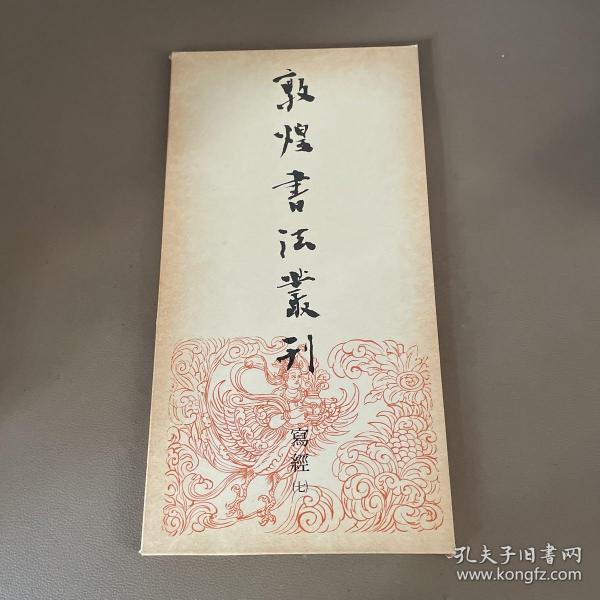 敦煌書法叢刊
寫經
(七)
孔夫子旧书网
www.kongfz.com